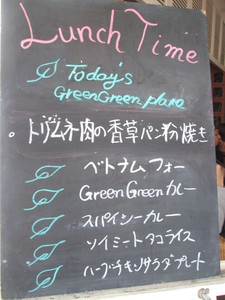 Lunch Time
Today's
GreenGreen plate
。トリムネ肉の香草パン粉焼き
ベトナムフォー
Green Greenカレー
スパイシーカレー
ソイミートタコライス
ハーブチキンサラダプレート